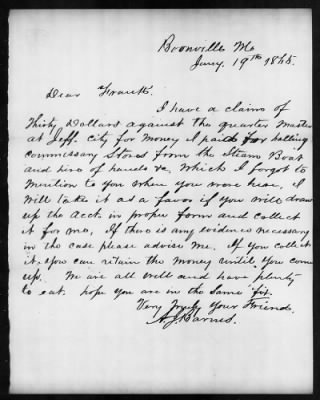 Boonville Mo
Jany. 19th 1865.
Dear Frank.
I have a claim of
Thirty Dollars against the quarter Master
at Jeff. City for money I paid for halling
commissary Stores from the Steam Boat
and hire of hands &c, which I forgot to
Mention to you when you were here, I
Will take it as a favor if you will draw
up the Acct. in proper form and collect
it for me, If there is any evidence necessary
in the case please advise Me. If you collect
it you can retain the money until you come
up. We are all well and have plenty
to eat. hope you are in the same fix.
Very Truly Your Friend.
A J Barnes.